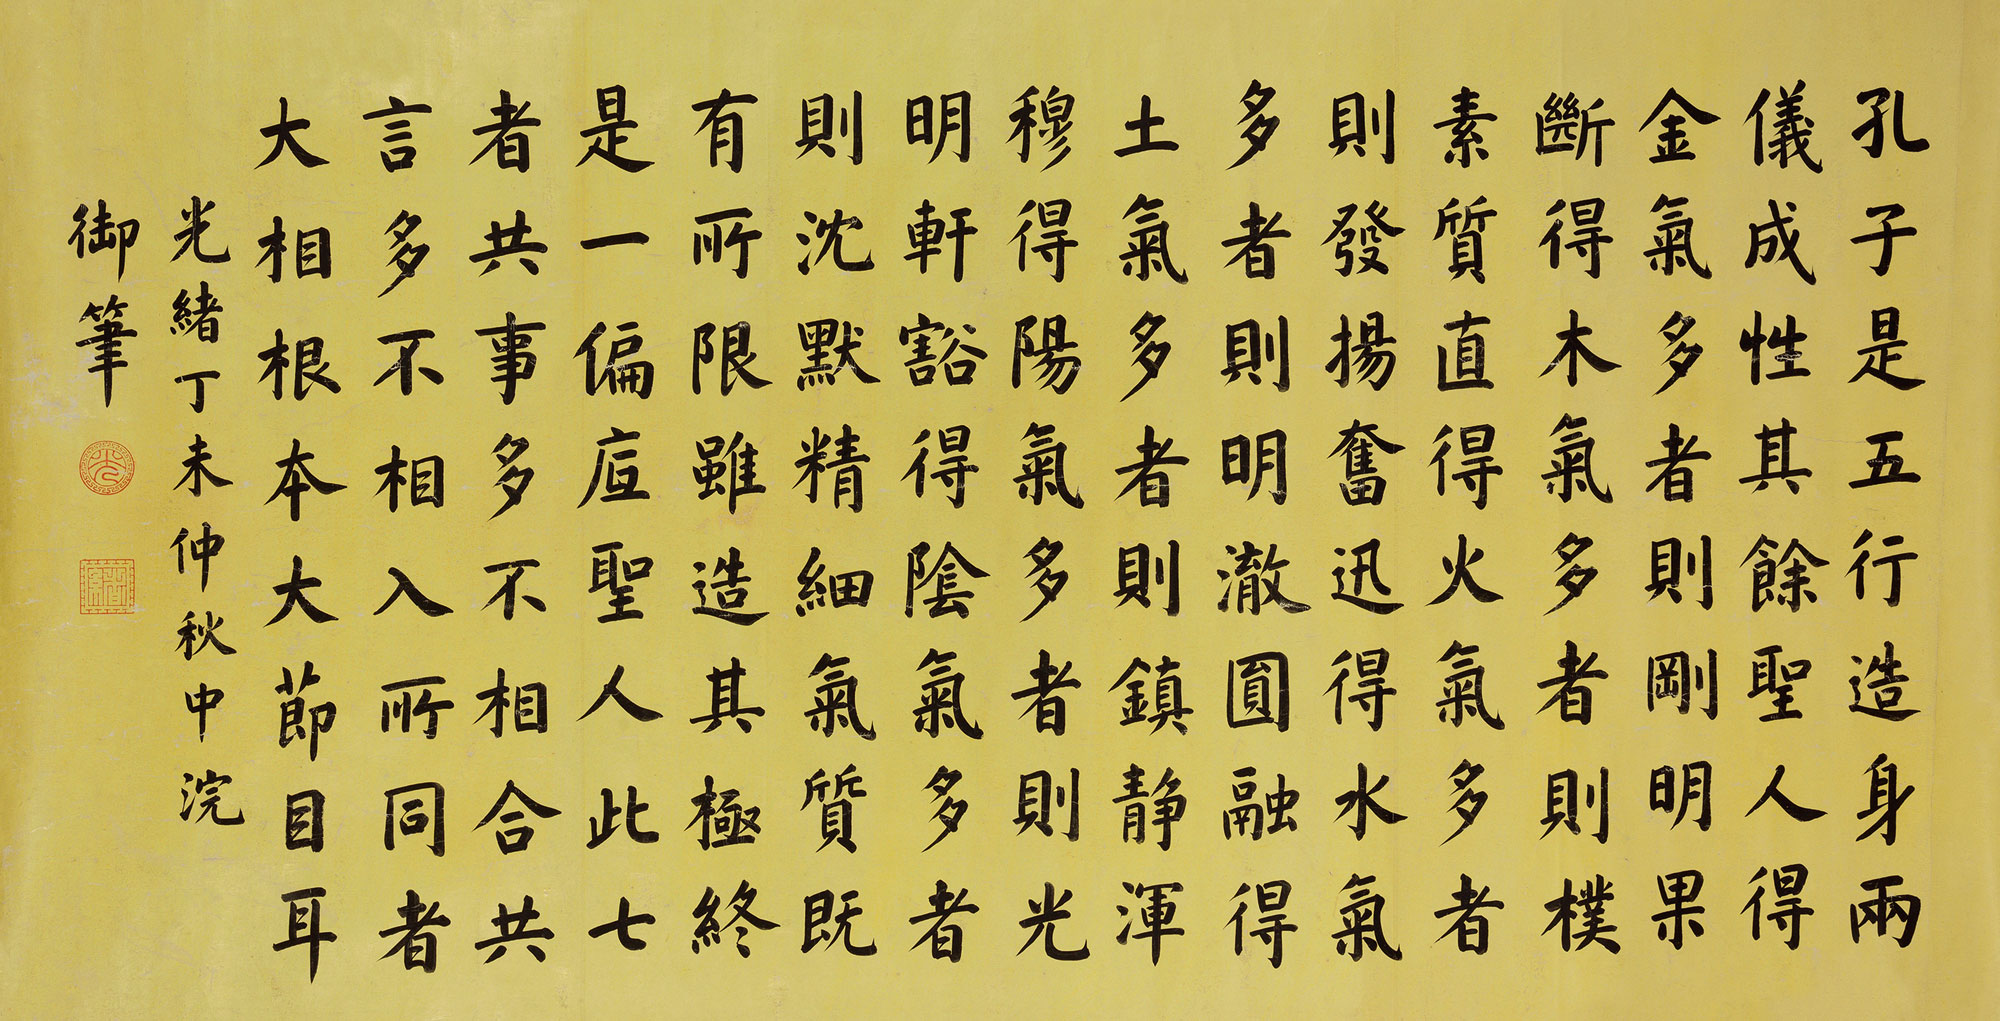 孔子是五行造身兩
儀成性其餘聖人得
金氣多者則剛明果
斷得木氣多者則樸
素質直得火氣多者
則發揚奮迅得水氣
多者則明澈圓融得
土氣多者則鎮靜渾
穆得陽氣多者則光
明軒豁得陰氣多者
則沈默精細氣質既
有所限雖造其極終
是一偏底聖人此七
者共事多不相合共
言多不相入所同者
大相根本大節目耳
光緒丁未仲秋中浣
御筆